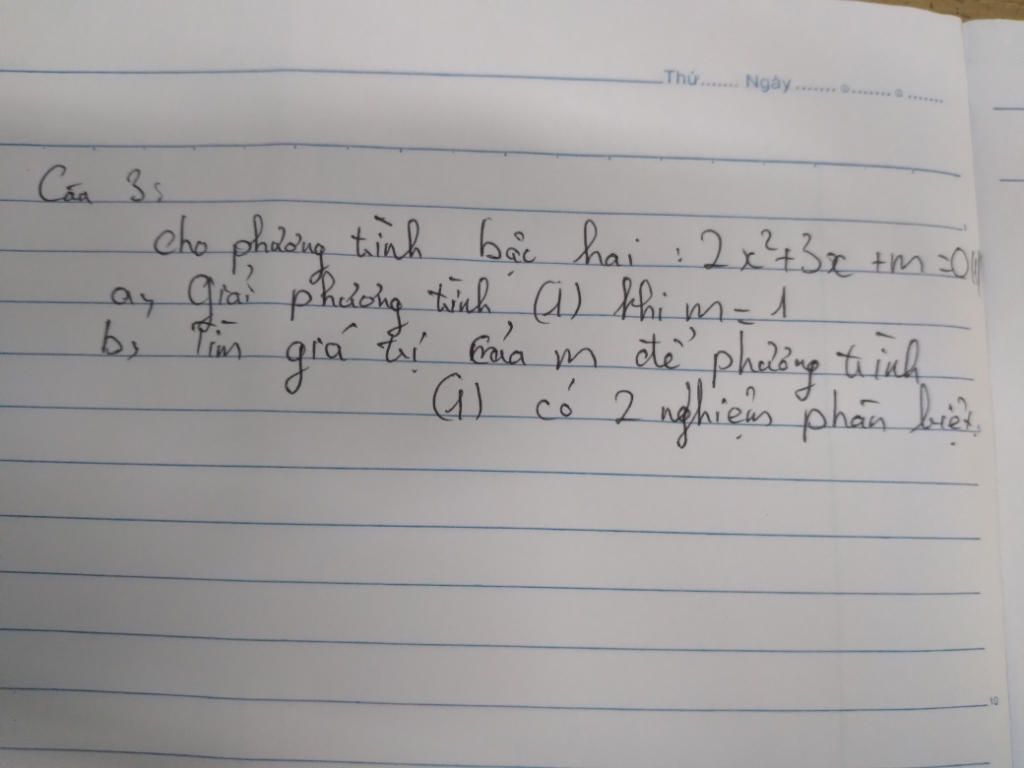 Thứ....... Ngày ....... ....... .......
Câu 3:
cho phương trình bậc hai : 2x²+3x +m =0(1)
a, Giải phương trình (1) khi m = 1
b, Tìm giá trị của m để phương trình
(1) có 2 nghiệm phân biệt.
10